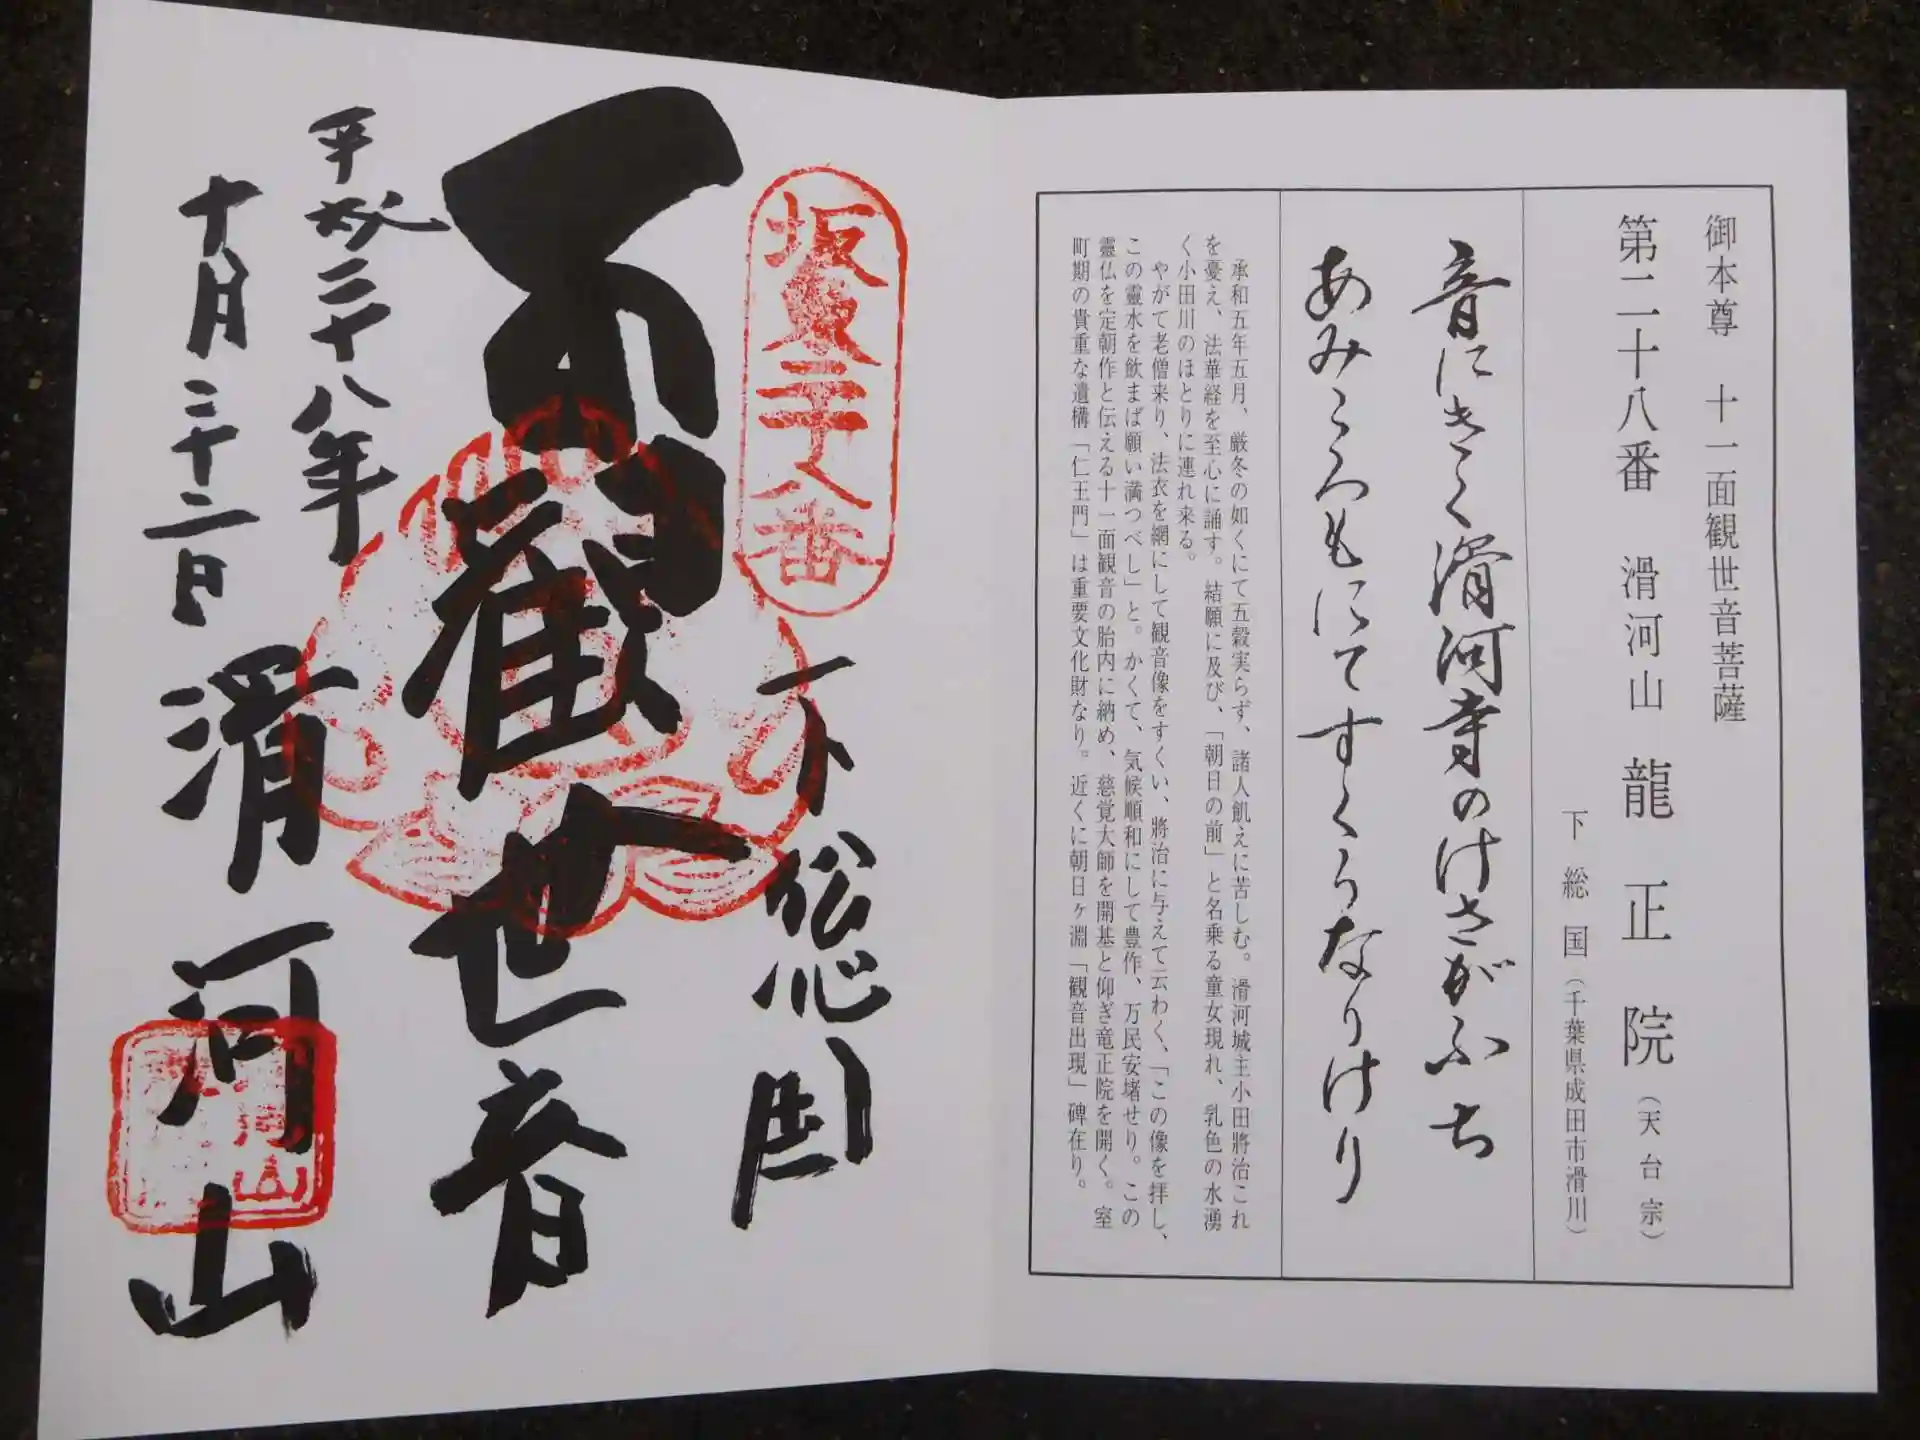 御本尊　十一面観世音菩薩
第二十八番　滑河山　龍正院（天台宗）
下総国（千葉県成田市滑川）
音にきく滑河寺のけさがふち
あみころもにてすくうなりけり
承和五年五月、厳冬の如くにて五穀実らず、諸人飢えに苦しむ。滑河城主小田將治これ
を憂え、法華経を至心に誦す。結願に及び、「朝日の前」と名乗る童女現れ、乳色の水湧
く小田川のほとりに連れ来る。
やがて老僧来り、法衣を網にして観音像をすくい、將治に与えて云わく、「この像を拝し、
この靈水を飲まば願い満つべし」と。かくて、気候順和にして豊作、万民安堵せり。この
靈仏を定朝作と伝える十一面観音の胎内に納め、慈覚大師を開基と仰ぎ竜正院を開く。室
町期の貴重な遺構「仁王門」は重要文化財なり。近くに朝日ヶ淵「観音出現」碑在り。
坂東二十八番
下総国
観世音
平成二十八年
十月二十二日
滑河山